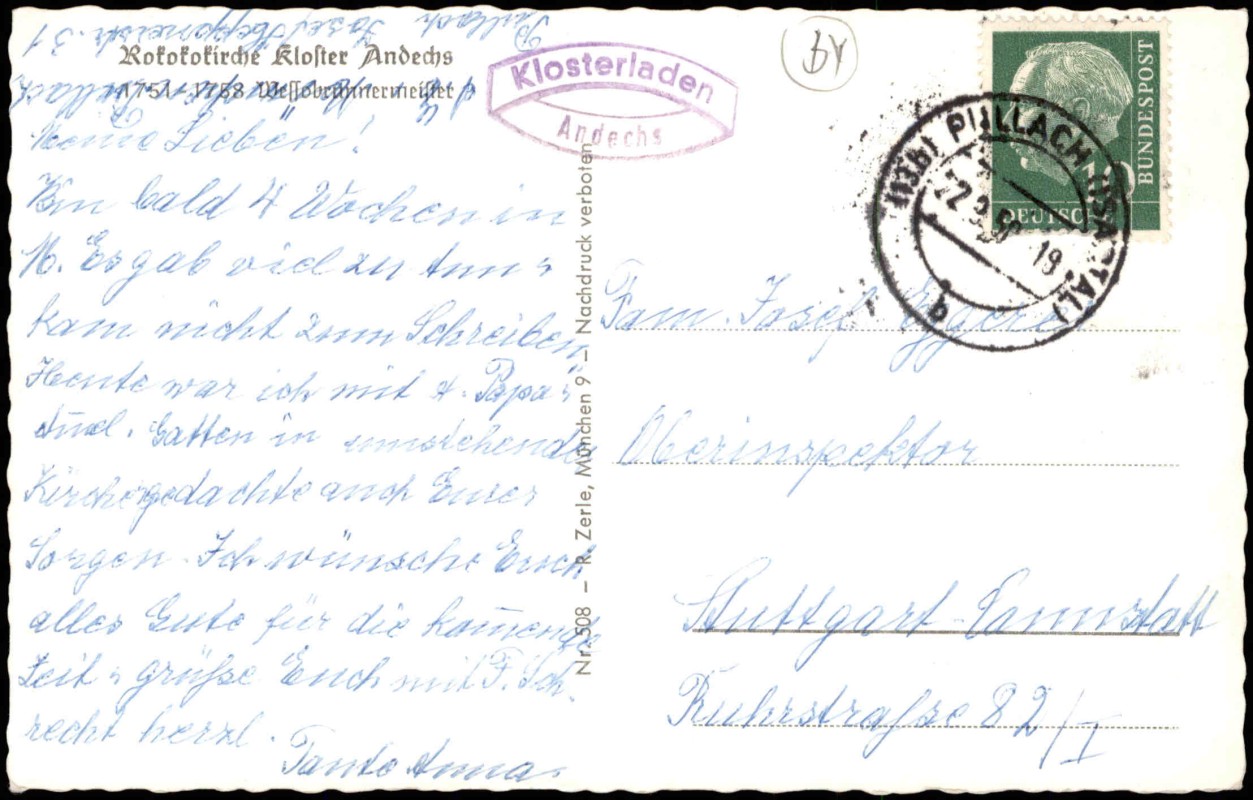 Rokokokirche Kloster Andechs
1751–1758 Wessobrunnermeister
Pullach
Josef Heppnerstr. 31
Klosterladen
Andechs
BY
BUNDESPOST
DEUTSCHE
10
(13b) PULLACH (ISARTAL)
19
b
Meine Lieben!
Bin bald 4 Wochen in
M. Es gab viel zu tun
kam nicht zum Schreiben.
Heute war ich mit
Gatten in umstehender
Kirche gedachte auch Eurer
Sorgen. Ich wünsche Euch
alles Gute für die komende
Zeit u. grüße Euch mit F. Sch
recht herzl.
Tante Anna.
Nr. 508 – R. Zerle, München 9 – Nachdruck verboten
Fam. Josef Eggers
Oberinspektor
Stuttgart-Cannstatt
Ruhrstraße 82/I